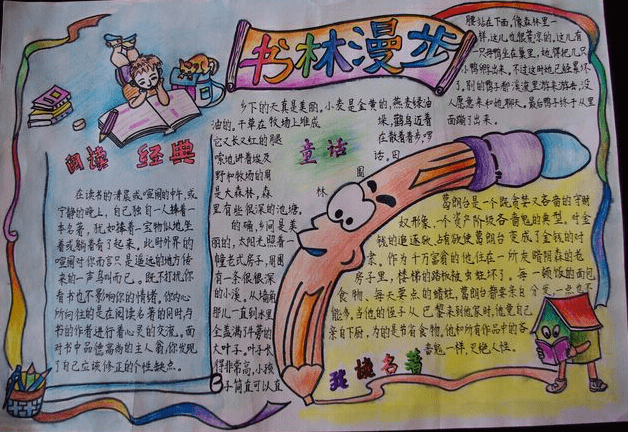 书林漫步
阅读 经典
在读书的清晨或喧闹的中午,或
宁静的晚上,自己独自一人捧着一
本名著,犹如捧着一宝物似地,坐
着或躺着看了起来,此时外界的
喧闹对你而言只是遥远的地方传
来的一声鸟叫而已。既不打扰你
看书也不影响你的情绪,你内心
所向往的是在阅读名著的同时与
书的作者进行着心灵的交流。面
对书中品德高尚的主人翁,你发现
了自己应该修正的个性缺点。
童话
乡下的天真是美丽。小麦是金黄的,燕麦绿油
油的。干草在牧场上堆成垛,鹳鸟迈着
它又长又红的腿在散着步,啰
嗦地讲着埃及话。田
野和牧场的周围
是大森林,森林
里有些很深的池塘。
的确,乡间是美
丽的,太阳光照着一
幢老式房子,周围
有一条很深
的小溪。从墙角
那儿一直到水里
全盖满牛蒡的
大叶子。叶子长
得非常高,小孩
子简直可以直
腰站在下面,像森林里一
样,这儿也很荒凉的。这儿有
一只母鸭坐在巢里,她得把几只
小鸭孵出来。不过这时她已经累坏
了。别的鸭子都溪流里游来游去,没
人愿意来和她聊天。最后鸭子终于从里
面蹦了出来。
我读名著
葛朗台是一个既贪婪又吝啬的守财
奴形象,一个资产阶级吝啬鬼的典型。对金
钱的追逐欲、占有欲使葛朗台变成了金钱的对
家,作为千万富翁的他,住在一所灰暗阴森的老
房子里,楼梯的踏板被虫蛀坏了。每一顿饭的面包
食物、每天要点的蜡烛,葛朗台都要亲自分发一点也不
能多。当他的侄子从巴黎来到他家时,他竟自己
亲自下厨,为的是节省食物。他和所有作品中的吝
啬鬼一样,灭绝人性。